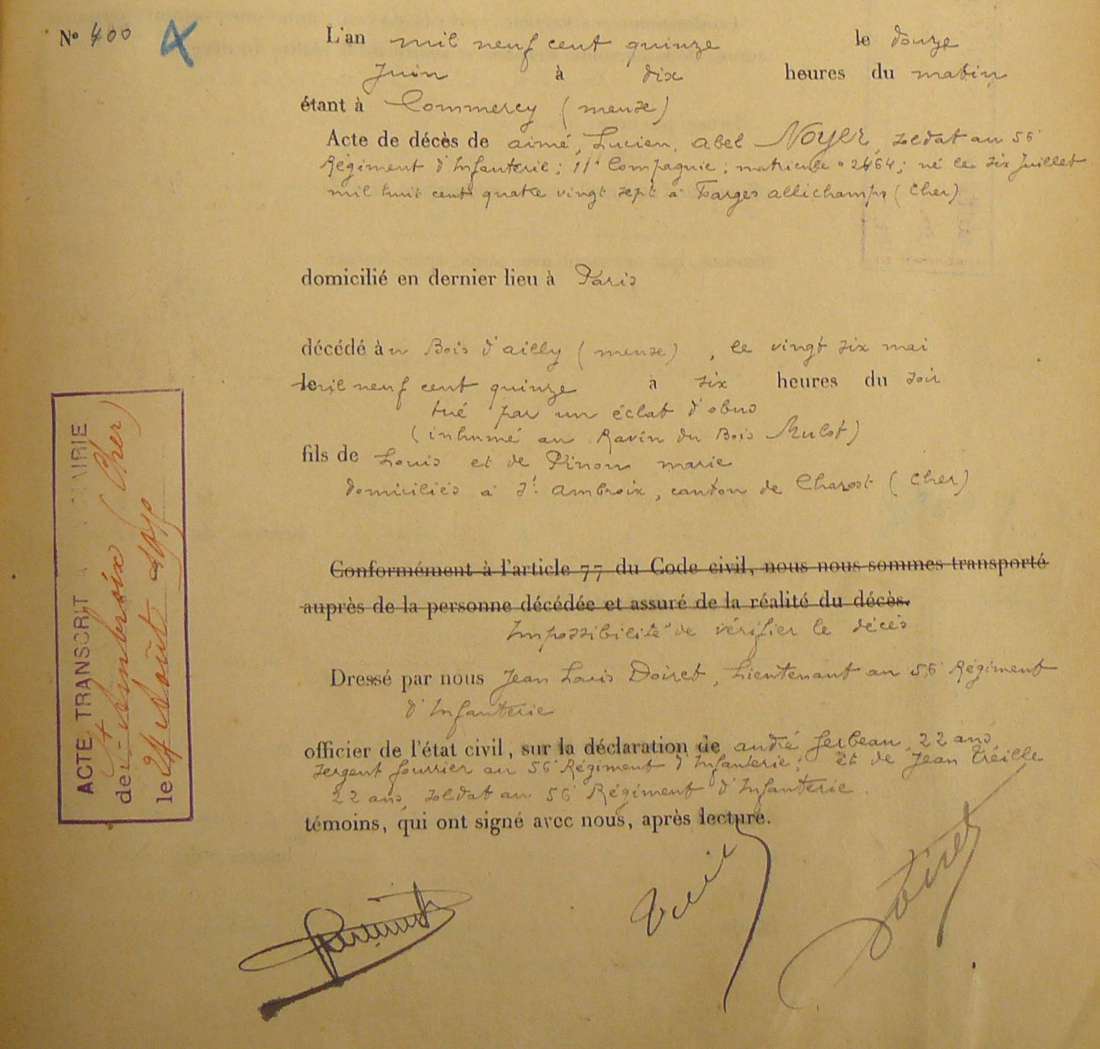 N° 400
L'an mil neuf cent quinze le douze
Juin à dix heures du matin
étant à Commercy (meuse)
Acte de décès de aimé, Lucien, abel Noyer, soldat au 56e
Régiment d'Infanterie; 11e Compagnie; matricule 2464; né le six Juillet
mil huit cent quatre vingt sept à Farges allichamps (Cher)
domicilié en dernier lieu à Paris
décédé au Bois d'ailly (meuse), le vingt six mai
mil neuf cent quinze à six heures du soir
tué par un éclat d'obus
(inhumé au Ravin du Bois Mulot)
fils de Louis et de Pinon marie
domiciliés à St ambroix, canton de Charost (Cher)
Conformément à l'article 77 du Code civil, nous nous sommes transporté
auprès de la personne décédée et assuré de la réalité du décès.
Impossibilité de vérifier le décès
Dressé par nous Jean Louis Doiret, Lieutenant au 56e Régiment
d'Infanterie
officier de l'état civil, sur la déclaration de andré Gerbeau, 22 ans
sergent fourrier au 56e Régiment d'Infanterie; et de Jean Tréille
22 ans, soldat au 56e Régiment d'Infanterie.
témoins, qui ont signé avec nous, après lecture.
Doiret
ACTE TRANSCRIT A MAIRIE
de St Ambroix (Cher)
le Août